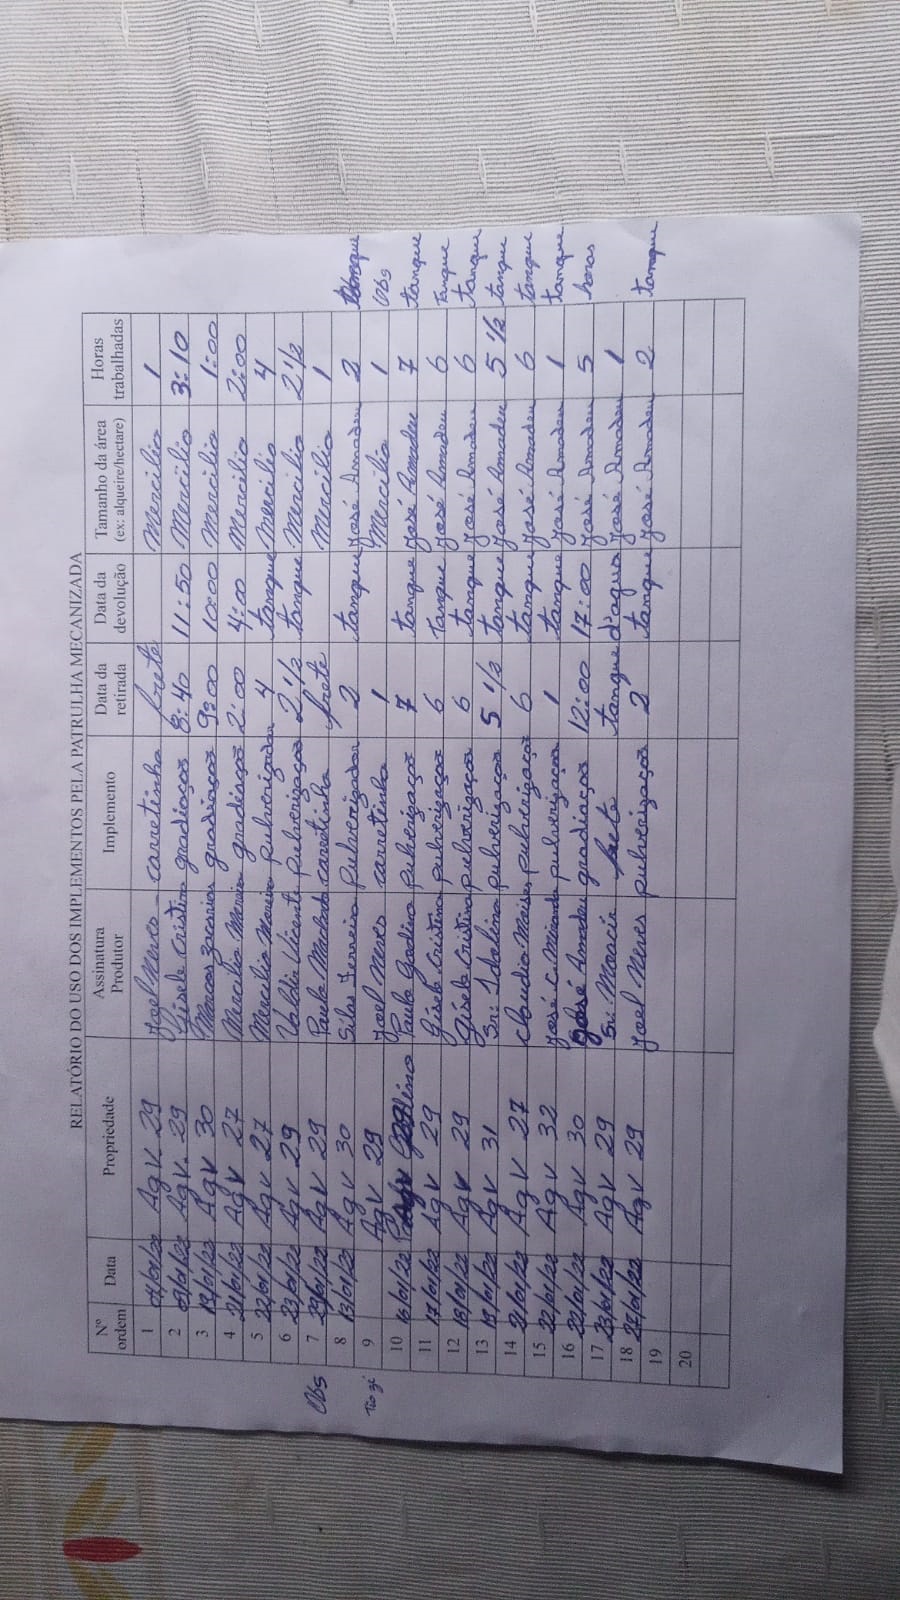 RELATÓRIO DO USO DOS IMPLEMENTOS PELA PATRULHA MECANIZADA
Nº ordem Data Propriedade Assinatura Produtor Implemento Data da retirada Data da devolução Tamanho da área (ex: alqueire/hectare) Horas trabalhadas
1 Ag V 29 Joel Neves carretinha frete Mercilio 1
2 Ag V. 29 Gisele Cristina gradiação 8:40 11:50 Mercilio 3:10
3 Ag V 30 Marcos gradiação 9:00 10:00 Mercilio 1:00
4 21/01/22 Ag V 27 Mercilio Moreira gradiação 2:00 4:00 Mercilio 2:00
5 22/01/22 Ag V 27 Mercilio Moreira pulverizador 4 tanque Mercilio 4
6 23/01/22 Ag V 29 Valdir Vicente pulverização 2 1/2 tanque Mercilio 2 1/2
Obs 7 29/01/22 Ag V 29 Paulo Machado carretinha frete Mercilio 1
8 13/01/22 Ag V 30 Silas Ferreira pulverizador 2 tanque José Amadeu 2 tanque
9 Ag V 29 Joel Neves carretinha 1 Mercilio 1 Obs
10 16/01/22 Paulo Godino pulverização 7 tanque José Amadeu 7 tanque
11 17/01/22 Ag V 29 Gisele Cristina pulverização 6 tanque José Amadeu 6 tanque
12 18/01/22 Ag V 29 Gisele Cristina pulverização 6 tanque José Amadeu 6 tanque
13 19/01/22 Ag V 31 Sr: Idalino pulverização 5 1/2 tanque José Amadeu 5 1/2 tanque
14 21/01/22 Ag V 27 Claudio Moises pulverização 6 tanque José Amadeu 6 tanque
15 22/01/22 Ag V 32 José C. Miranda pulverização 1 tanque José Amadeu 1 tanque
16 22/01/22 Ag V 30 José Amadeu gradiação 12:00 17:00 José Amadeu 5 horas
17 23/01/22 Ag V 29 Sr: Moacir frete tanque d'agua José Amadeu 1
18 27/01/22 Ag V 29 Joel Neves pulverização 2 tanque José Amadeu 2 tanque
19
20